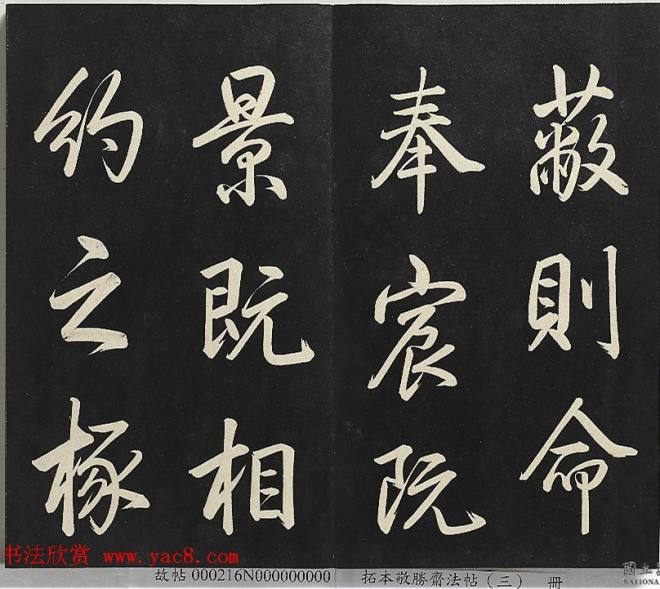 蔽則命
奉宸阮
景既相
約之椓
书法欣赏 www.yac8.com
故帖 000216N000000000
拓本敬勝齋法帖（三） 冊
國立
NATIONA